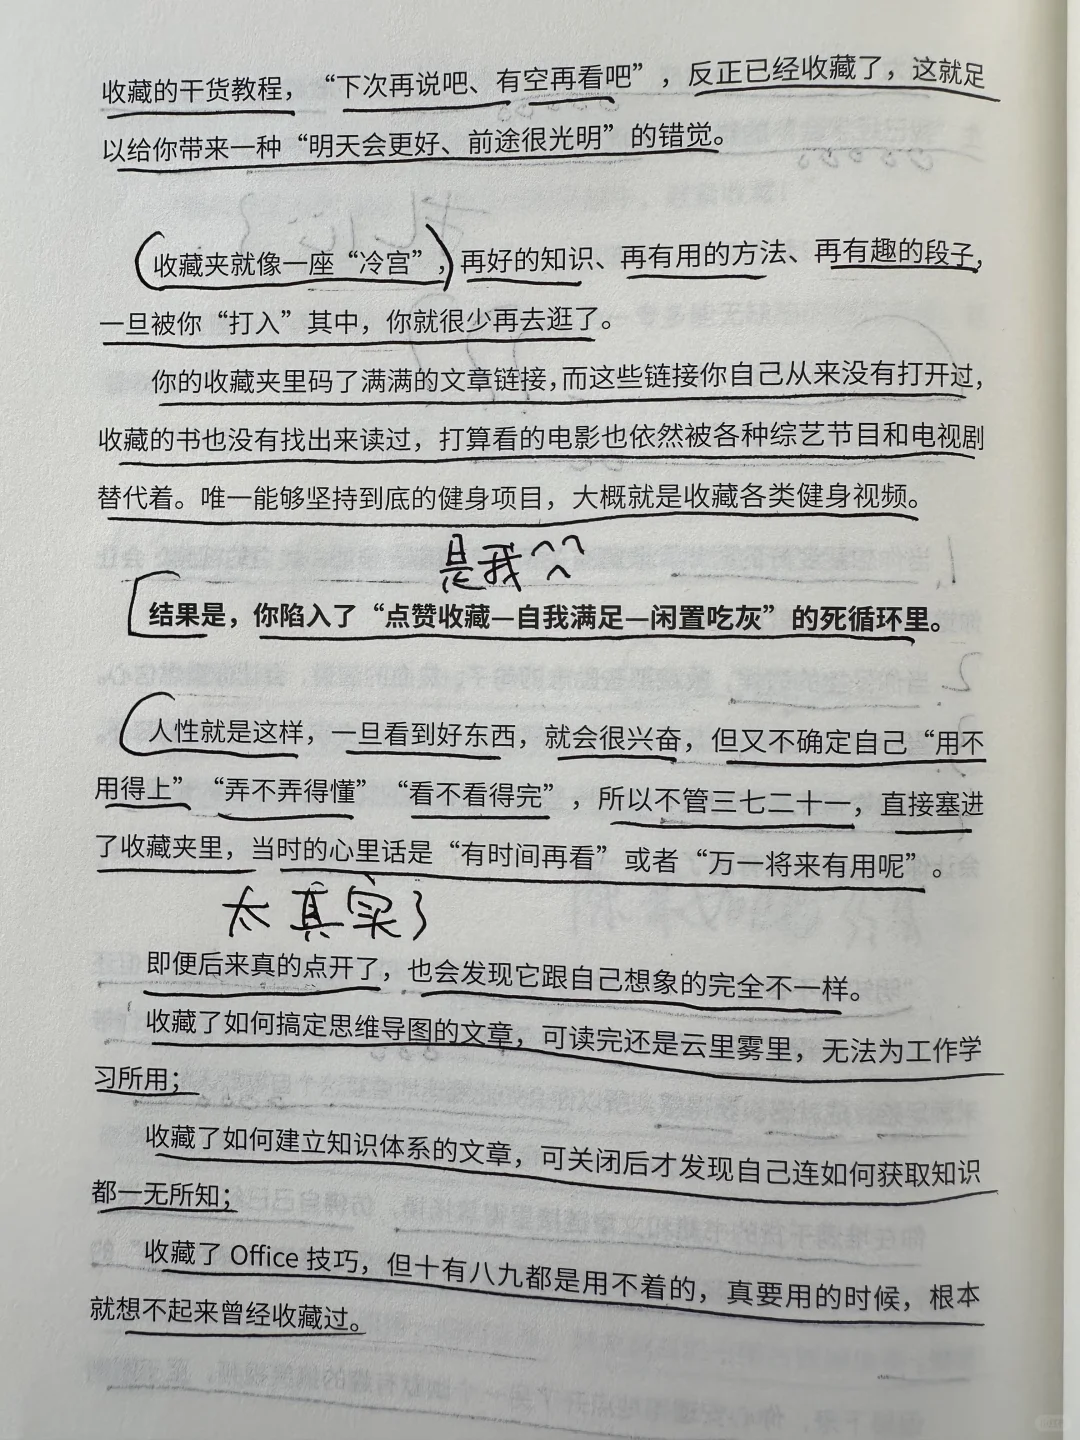 收藏的干货教程，“下次再说吧、有空再看吧”，反正已经收藏了，这就足
以给你带来一种“明天会更好、前途很光明”的错觉。
收藏夹就像一座“冷宫”，再好的知识、再有用的方法、再有趣的段子，
一旦被你“打入”其中，你就很少再去逛了。
你的收藏夹里码了满满的文章链接，而这些链接你自己从来没有打开过，
收藏的书也没有找出来读过，打算看的电影也依然被各种综艺节目和电视剧
替代着。唯一能够坚持到底的健身项目，大概就是收藏各类健身视频。
是我^^
结果是，你陷入了“点赞收藏—自我满足—闲置吃灰”的死循环里。
人性就是这样，一旦看到好东西，就会很兴奋，但又不确定自己“用不
用得上”“弄不弄得懂”“看不看得完”，所以不管三七二十一，直接塞进
了收藏夹里，当时的心里话是“有时间再看”或者“万一将来有用呢”。
太真实了
即便后来真的点开了，也会发现它跟自己想象的完全不一样。
收藏了如何搞定思维导图的文章，可读完还是云里雾里，无法为工作学
习所用；
收藏了如何建立知识体系的文章，可关闭后才发现自己连如何获取知识
都一无所知；
收藏了 Office 技巧，但十有八九都是用不着的，真要用的时候，根本
就想不起来曾经收藏过。